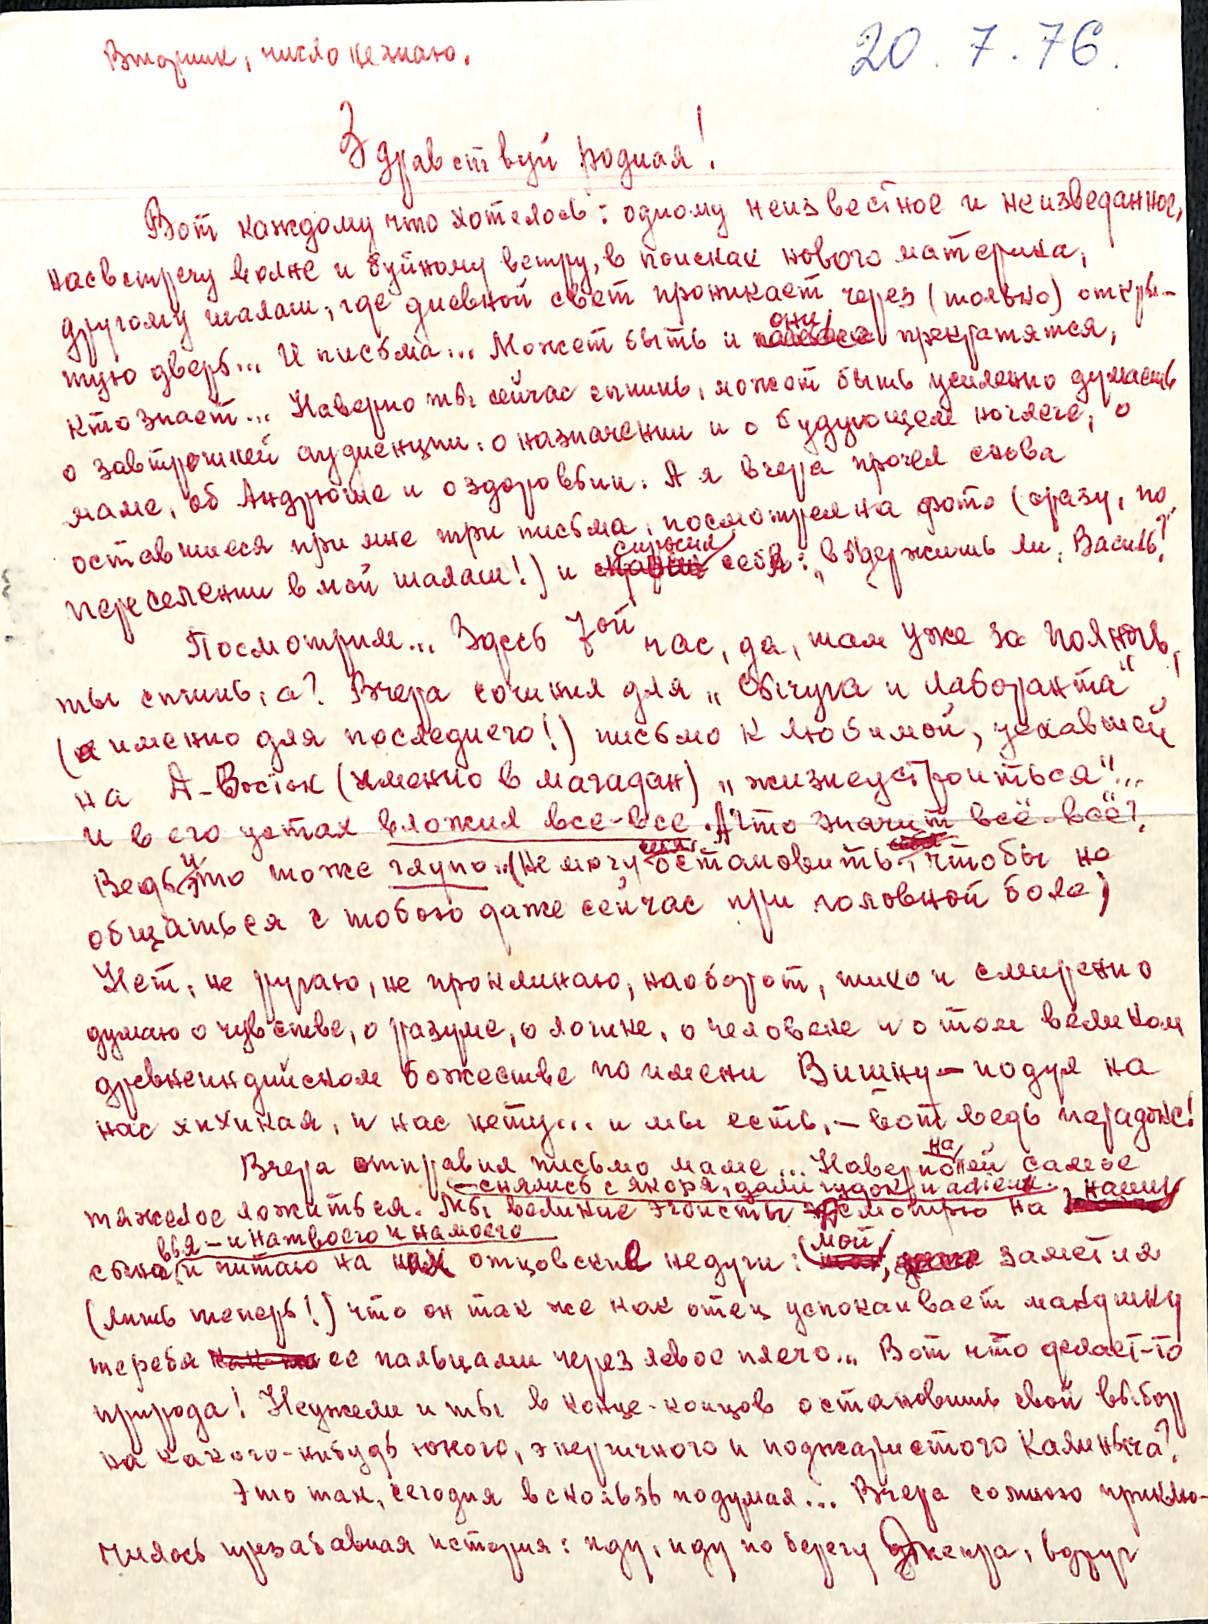 Вторник, число не знаю.
20.7.76.
Здравствуй родная!
Вот каждому что хотелось: одному неизвестное и неизведанное,
навстречу волне и буйному ветру, в поисках нового материка,
другому шалаш, где дневной свет проникает через (только) откры-
тую дверь... И письма... Может быть и они прекратятся,
кто знает... Наверно ты сейчас спишь, может быть усиленно думаешь
о завтрашней аудиенции: о назначении и о будующем ночлеге, о
маме, об Андрюше и о здоровьи. А я вчера прочел снова
оставшиеся при мне три письма, посмотрел на фото (сразу, по
переселении в мой шалаш!) и спросил себя: „выдержишь ли, Василь?"
Посмотрим... Здесь 7ой час, да, там уже за полночь,
ты спишь, а? Вчера сочинил для „Свічура и лаборанта"
(а именно для последнего!) письмо к любимой, уехавшей
на Д-Восток (именно в Магадан) „жизнеустроиться"...
и в его устах вложил все-все. А что значит всё-всё?
Ведь и это тоже глупо.. (не могу себя остановить, чтобы не
общаться с тобою даже сейчас при головной боле)
Нет, не ругаю, не проклинаю, наоборот, тихо и смиренно
думаю о чувстве, о разуме, о логике, о человеке и о том великом
древнеиндийском божестве по имени Вишну — подул на
нас хихикая, и нас нету... и мы есть, — вот ведь парадокс!
Вчера отправил письмо маме... Наверно на ней самое
— снялись с якоря, дали гудок и adieu.
тяжелое ложиться. Мы великие эгоисты. Смотрю на наших
вья — и на твоего и на моего
сына, и питаю на отцовские недуги: (мой, заметил
(лишь теперь!) что он так же как отец успокаивает мамашку
теребя ее пальцами через левое плечо... Вот что делает-то
природа! Неужели и ты в конце-концов остановишь свой выбор
на какого-нибудь юного, энергичного и поджаристого Калиныча?
Это так, сегодня вскользь подумал... Вчера со мною приклю-
чилось презабавная история: иду, иду по берегу Днепра, вдруг